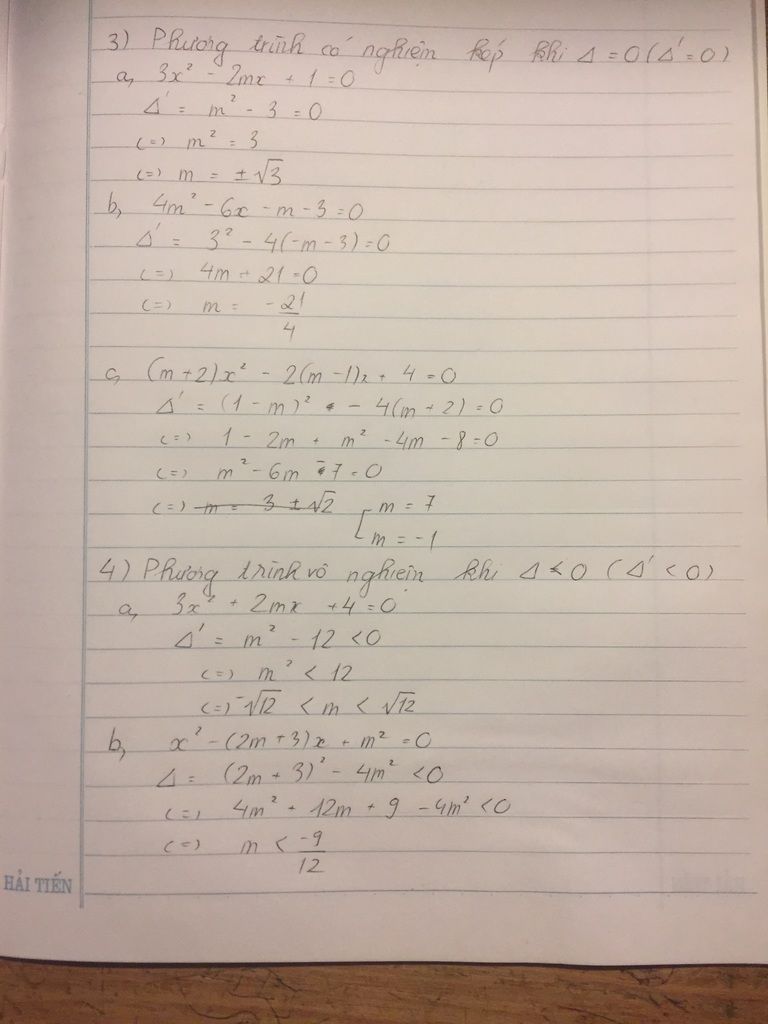 3) Phương trình có nghiệm kép khi Δ = 0 (Δ' = 0)
a, 3x² - 2mx + 1 = 0
Δ' = m² - 3 = 0
(=) m² = 3
(=) m = ±√3
b, 4m² - 6x - m - 3 = 0
Δ' = 3² - 4(-m - 3) = 0
(=) 4m + 21 = 0
(=) m = -21/4
c, (m + 2)x² - 2(m - 1)x + 4 = 0
Δ' = (1 - m)² - 4(m + 2) = 0
(=) 1 - 2m + m² - 4m - 8 = 0
(=) m² - 6m - 7 = 0
(=) m = 3 ±√2 [ m = 7
m = -1
4) Phương trình vô nghiệm khi Δ < 0 (Δ' < 0)
a, 3x² + 2mx + 4 = 0
Δ' = m² - 12 < 0
(=) m² < 12
(=) -√12 < m < √12
b, x² - (2m + 3)x + m² = 0
Δ = (2m + 3)² - 4m² < 0
(=) 4m² + 12m + 9 - 4m² < 0
(=) m < -9/12
HẢI TIẾN